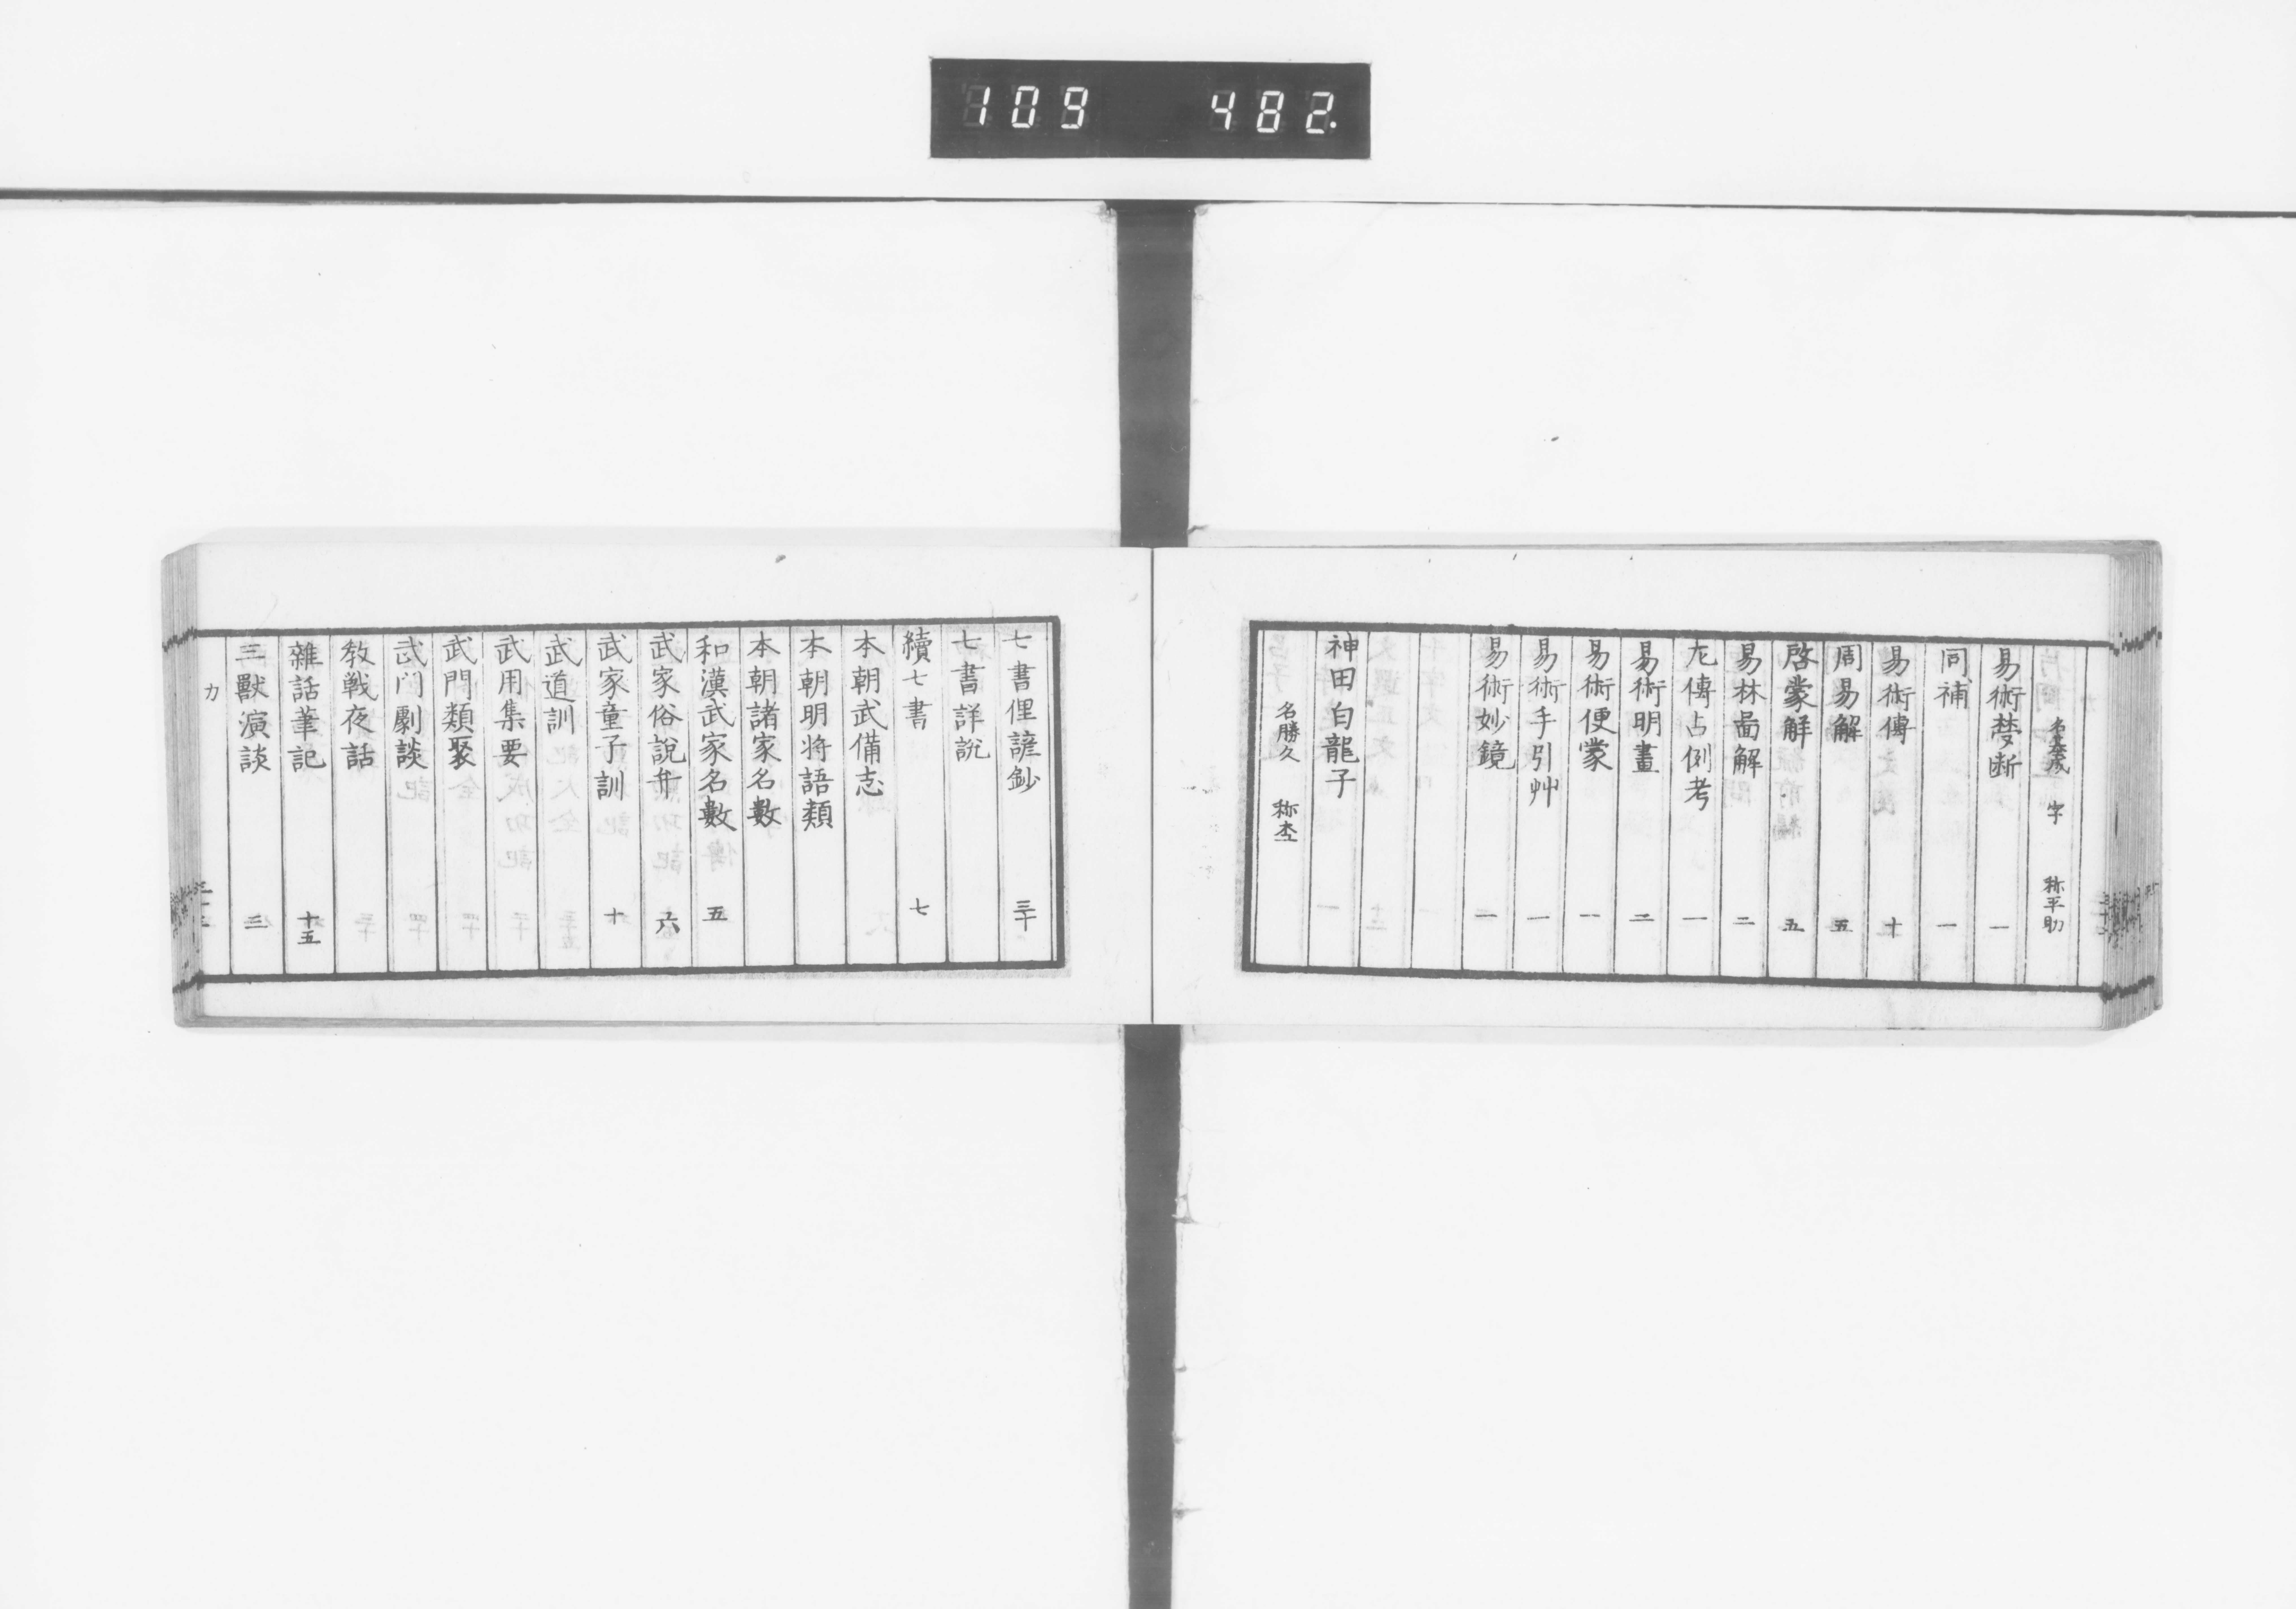 109 482.
字 称平助
易術梦断 一
同補 一
易術傳 十
周易解 五
啓蒙解 五
易林啚解 二
左傳占例考 一
易術明畫 二
易術便蒙 一
易術手引艸 一
易術妙鏡 一
神田白龍子
名勝久 称
七書俚諺鈔 三十
七書詳説
續七書 七
本朝武備志
本朝明将語類
本朝諸家名數
和漢武家名數 五
武家俗說弁 六
武家童子訓 十
武道訓
武用集要
武門類聚
武门劇談
教戦夜話
雜話筆記 十五
三獸演談 三
カ